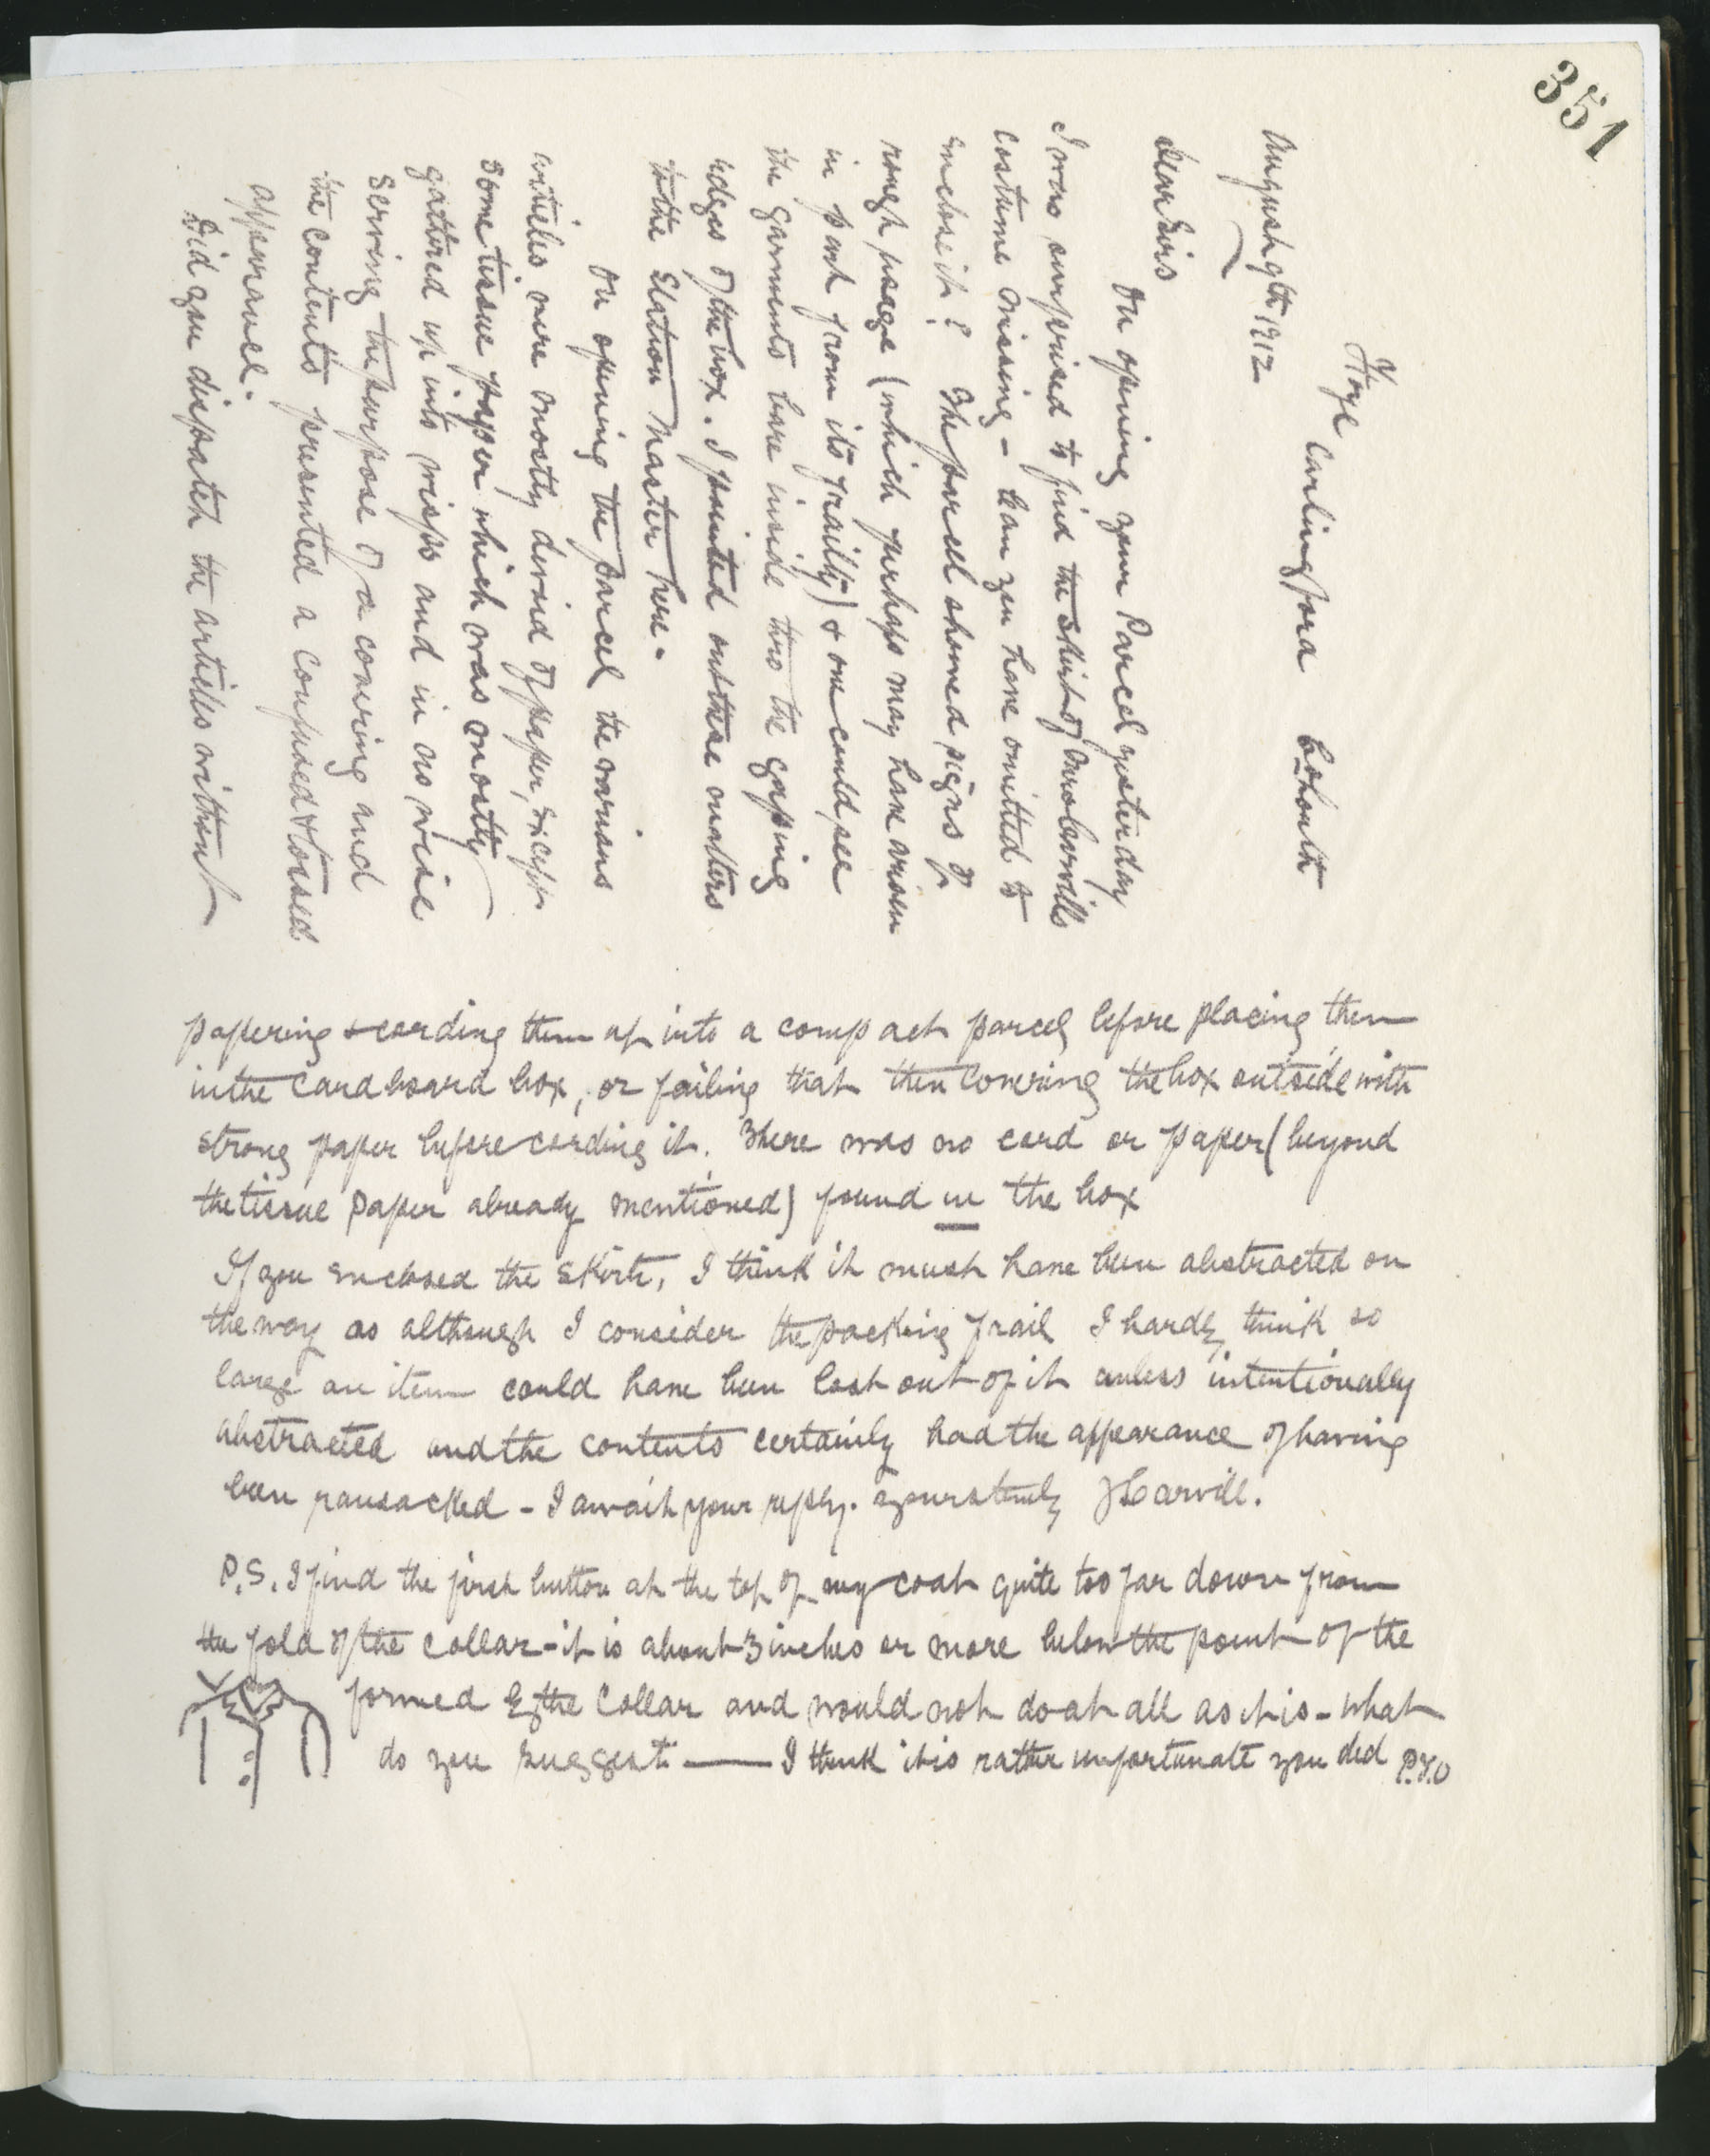 351
Foye Carlingford Co Louth
August 9th 1912
Dear Sirs
On opening your Parcel yesterday
I was surprised to find the skirt of Mrs Carvills
costume missing - Can you have omitted to
enclose it? The parcel showed signs of
rough usage (which perhaps may have arisen
in part from its frailty) & one could see
the garments bare inside thro the gaping
edges of the box. I pointed out these matters
to the Station Master here.
On opening the parcel the various
articles were mostly devoid of paper, except
some tissue paper which was mostly
gathered up into wisps and in no wise
serving the purpose of a covering and
the contents presented a confused & tossed
appearance.
Did you dispatch the articles without
papering & cording them up into a compact parcel before placing them
in the Cardboard box, or failing that then covering the box outside with
strong paper before cording it. There was no cord or paper (beyond
the tissue paper already mentioned) found in the box
If you enclosed the skirt, I think it must have been abstracted on
the way as although I consider the packing frail I hardly think so
large an item could have been lost out of it unless intentionally
abstracted and the contents certainly had the appearance of having
been ransacked - I await your reply. Yours truly JHCarvill.
P.S. I find the first button at the top of my coat quite too far down from
the fold of the collar - it is about 3 inches or more below the point of the
V formed by the Collar and would not do at all as it is - what
do you suggest — I think it is rather unfortunate you did P.T.O